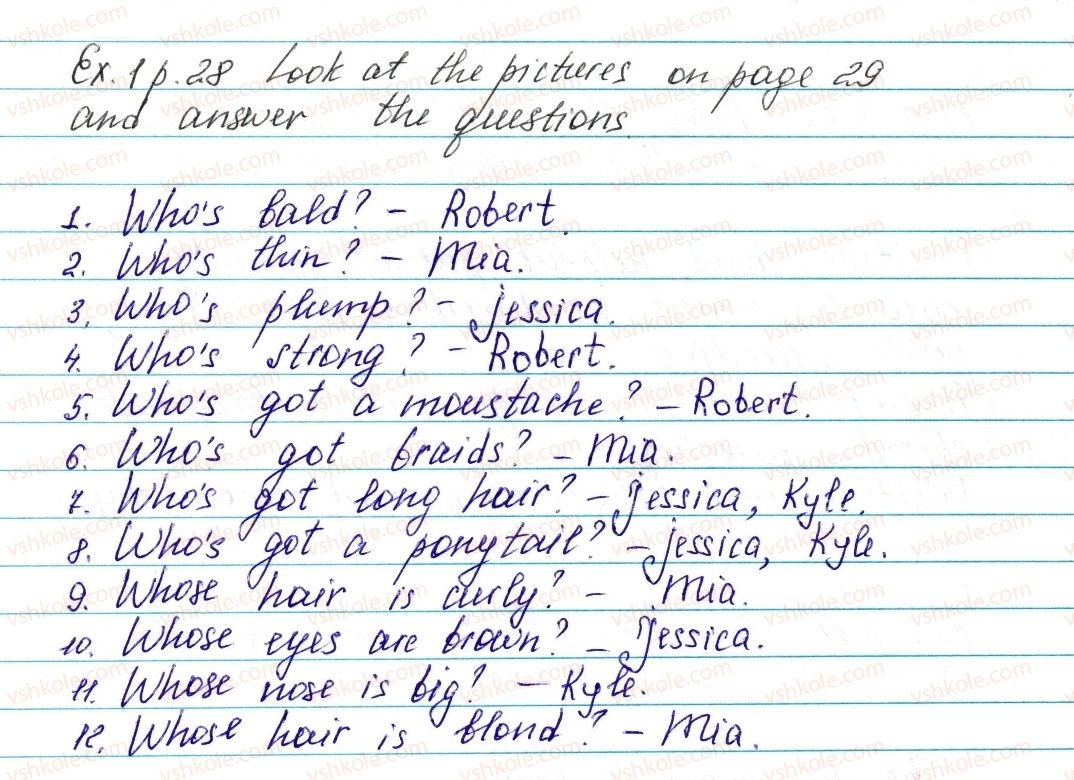 Ex. 1 p. 28 Look at the pictures on page 29
and answer the questions.
1. Who's bald? – Robert.
2. Who's thin? – Mia.
3. Who's plump? – Jessica.
4. Who's strong? – Robert.
5. Who's got a moustache? – Robert.
6. Who's got braids? – Mia.
7. Who's got long hair? – Jessica, Kyle.
8. Who's got a ponytail? – Jessica, Kyle.
9. Whose hair is curly? – Mia.
10. Whose eyes are brown? – Jessica.
11. Whose nose is big? – Kyle.
12. Whose hair is blond? – Mia.